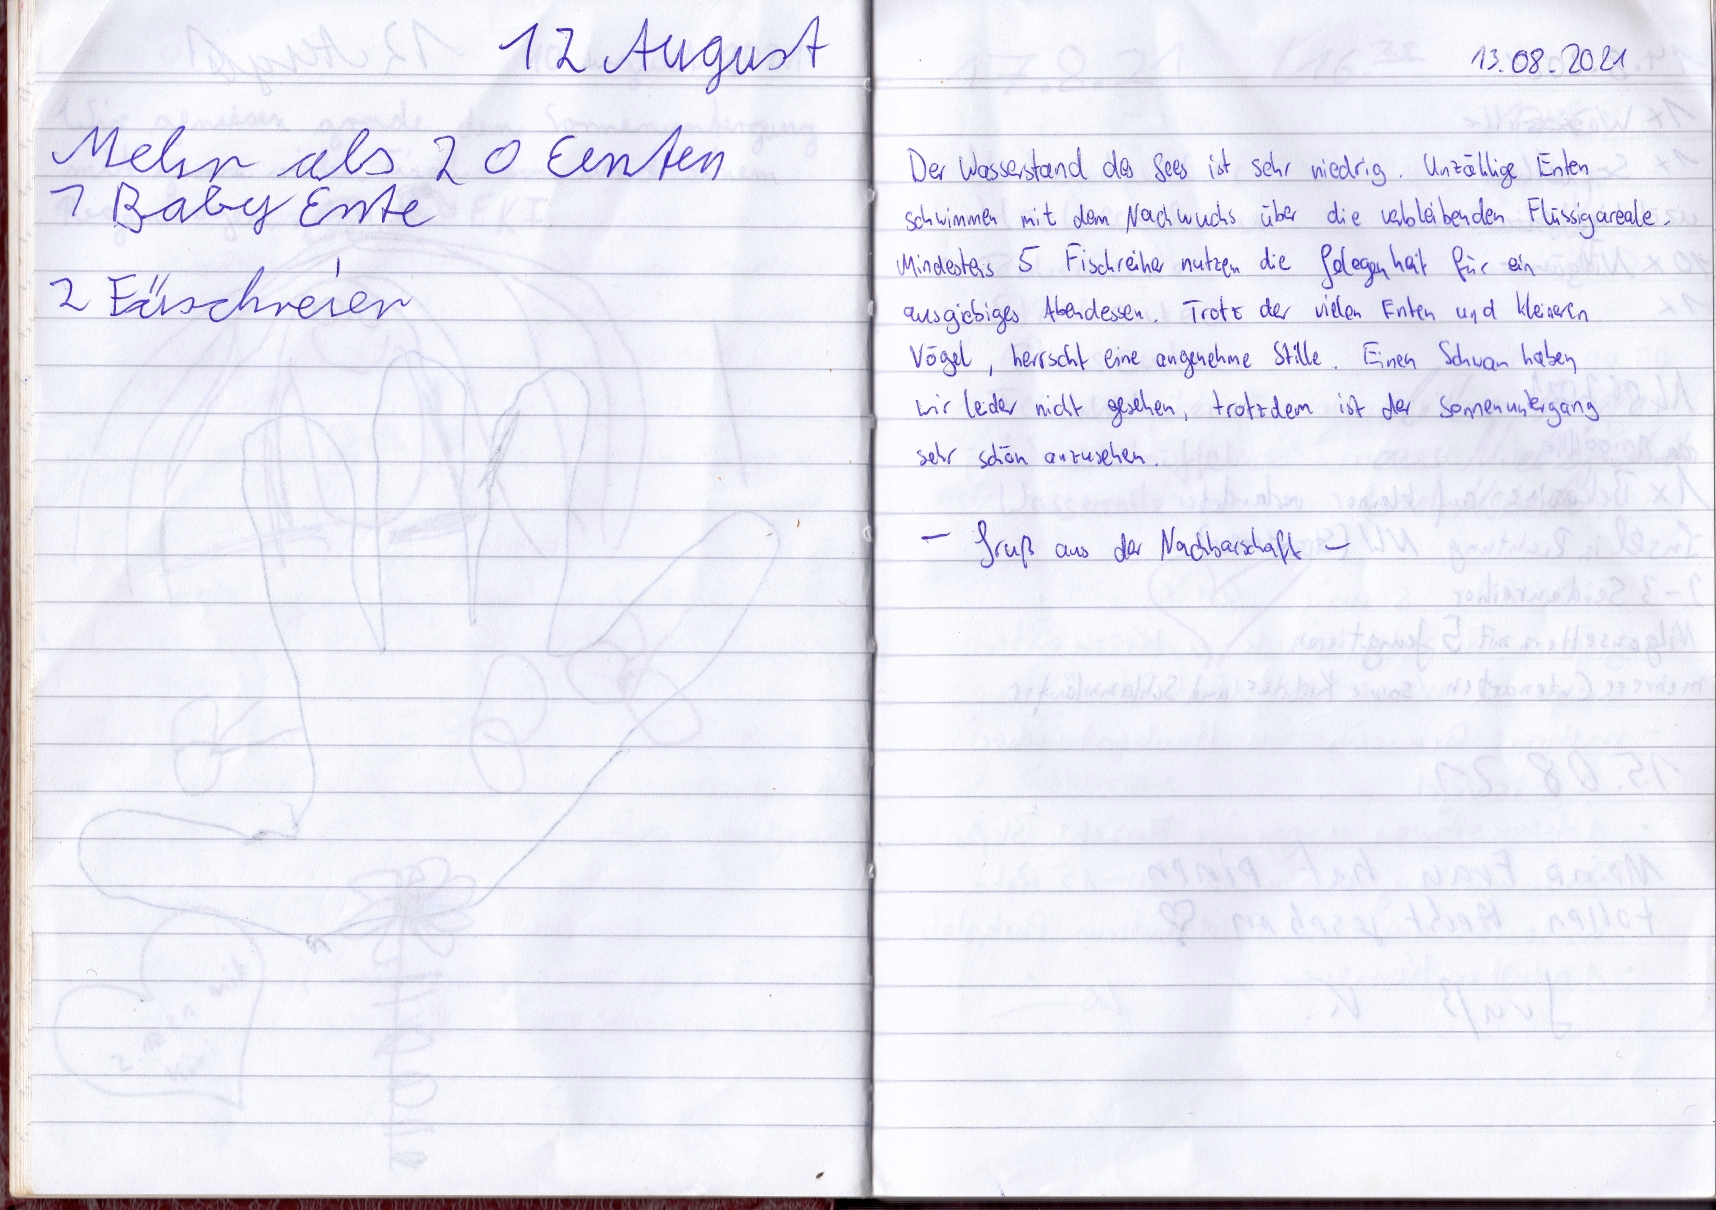 12 August
Mehr als 20 Eenten
1 Baby Ente
2 Fäschreier
13.08.2021
Der Wasserstand des Sees ist sehr niedrig. Unzählige Enten
schwimmen mit dem Nachwuchs über die verbleibenden Flüssigareale.
Mindestens 5 Fischreiher nutzen die Gelegenheit für ein
ausgiebiges Abendessen. Trotz der vielen Enten und kleineren
Vögel, herrscht eine angenehme Stille. Einen Schwan haben
wir leider nicht gesehen, trotzdem ist der Sonnenuntergang
sehr schön anzusehen.
— Gruß aus der Nachbarschaft —